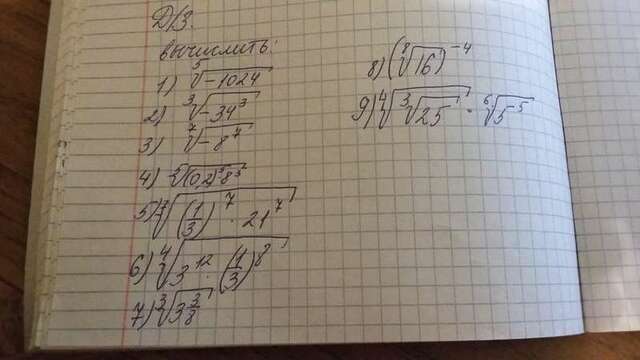 Д/З.
вычислить:
1) ⁵√-1024
2) ³√-34³
3) ⁷√-8⁷
4) ⁵√(0,2)⁵8⁵
5) ⁷√(1/3)⁷ · 21⁷
6) ⁴√3¹² · (1/3)⁸
7) ³√3 3/8
8) (⁸√16)⁻⁴
9) ⁴√³√25 · ⁶√5⁻⁵